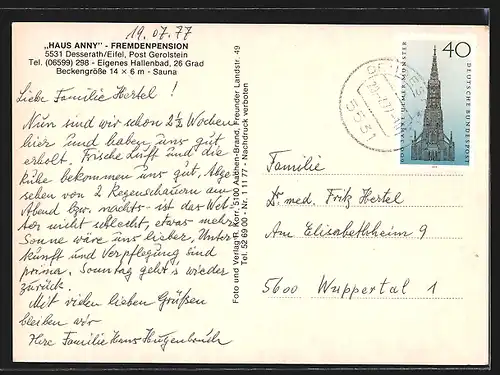 19.07.77
„HAUS ANNY" - FREMDENPENSION
5531 Desserath/Eifel, Post Gerolstein
Tel. (06599) 298 - Eigenes Hallenbad, 26 Grad
Beckengröße 14 x 6 m - Sauna
Liebe Familie Hertel!
Nun sind wir schon 2½ Wochen
hier und haben uns gut
erholt. Frische Luft und die
Ruhe bekommen uns gut. Abge-
sehen von 2 Regenschauern am
Abend bzw. nachts - ist das Wet-
ter nicht schlecht, etwas mehr
Sonne wäre uns lieber, Unter
kunft und Verpflegung sind
prima. Sonntag geht's wieder
zurück.
Mit vielen lieben Grüßen
bleiben wir
Ihre Familie Hans
Foto und Verlag R. Korr, 5100 Aachen-Brand, Freunder Landstr. 49
Tel. 52 60 00 - Nr. 1 11 77 - Nachdruck verboten
40
DEUTSCHE BUNDESPOST
600 JAHRE ULMER MÜNSTER
5531
Familie
Dr. med. Fritz Hertel
Am Elisabethheim 9
5600 Wuppertal 1